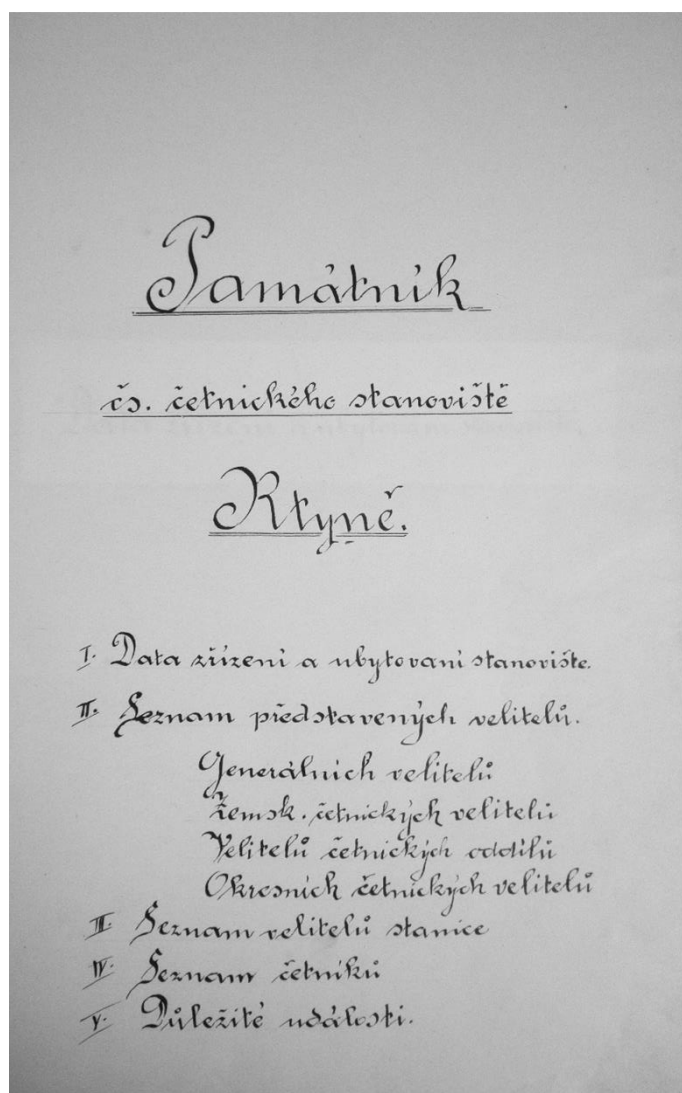 Památník
čs. četnického stanoviště
Rtyně.
I. Data zřízení a ubytování stanoviště.
II. Seznam představených velitelů.
Generálních velitelů
Zemsk. četnických velitelů
Velitelů četnických oddílů
Okresních četnických velitelů
III. Seznam velitelů stanice
IV. Seznam četníků
V. Důležité události.